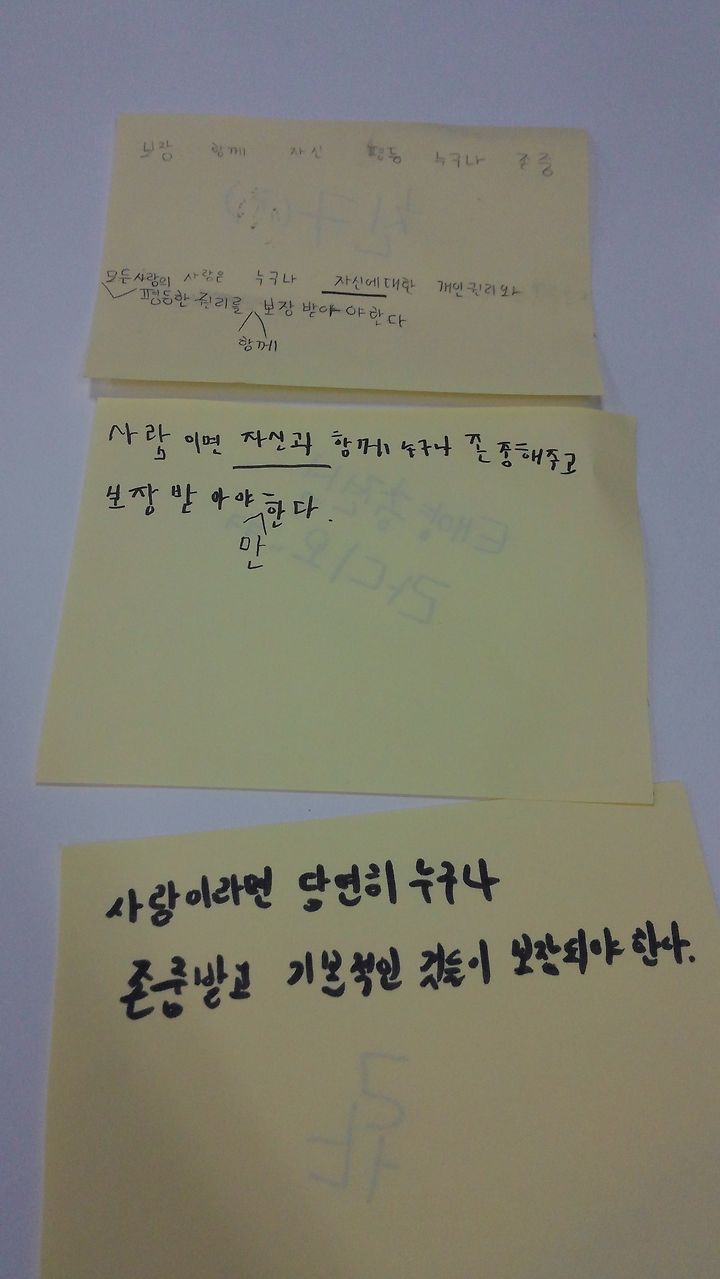 보장 함께 자신 평등 누구나 존중
모든사람의 사람은 누구나 자신에대한 개인권리와
평등한 권리를 보장받아야한다
함께
사람이면 자신과 함께 누구나 존중해주고
보장받아야한다.
만
사람이라면 당연히 누구나
존중받고 기본적인 것들이 보장되야한다.